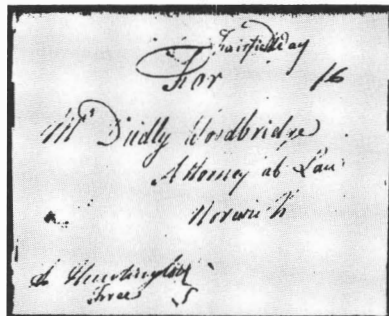 Fairfield
For 16
Mr Dudly Woodbridge
Attorney at Law
Norwich
Huntington
Free